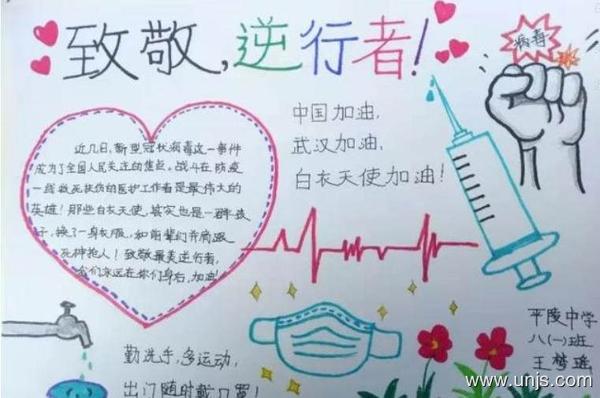 致敬,逆行者!
病毒
中国加油,
武汉加油,
白衣天使加油!
近几日,新型冠状病毒这一事件
成为了全国人民关注的焦点。战斗在防疫
一线救死扶伤的医护工作者是最伟大的
英雄!那些白衣天使,其实也是一群孩
子,换了一身衣服,和前辈们并肩跟
死神抢人!致敬最美逆行者,
我们永远在你们身后,加油!
勤洗手,多运动,
出门随时戴口罩!
平陵中学
八(一)班
王梦瑶
www.unjs.com